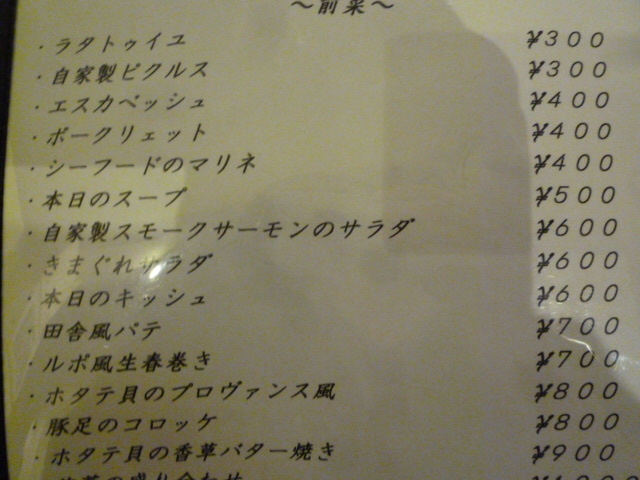 ～前菜～
・ラタトゥイユ ¥300
・自家製ピクルス ¥300
・エスカベッシュ ¥400
・ポークリエット ¥400
・シーフードのマリネ ¥400
・本日のスープ ¥500
・自家製スモークサーモンのサラダ ¥600
・きまぐれサラダ ¥600
・本日のキッシュ ¥600
・田舎風パテ ¥700
・ルポ風生春巻き ¥700
・ホタテ貝のプロヴァンス風 ¥800
・豚足のコロッケ ¥800
・ホタテ貝の香草バター焼き ¥900
の盛り合わせ